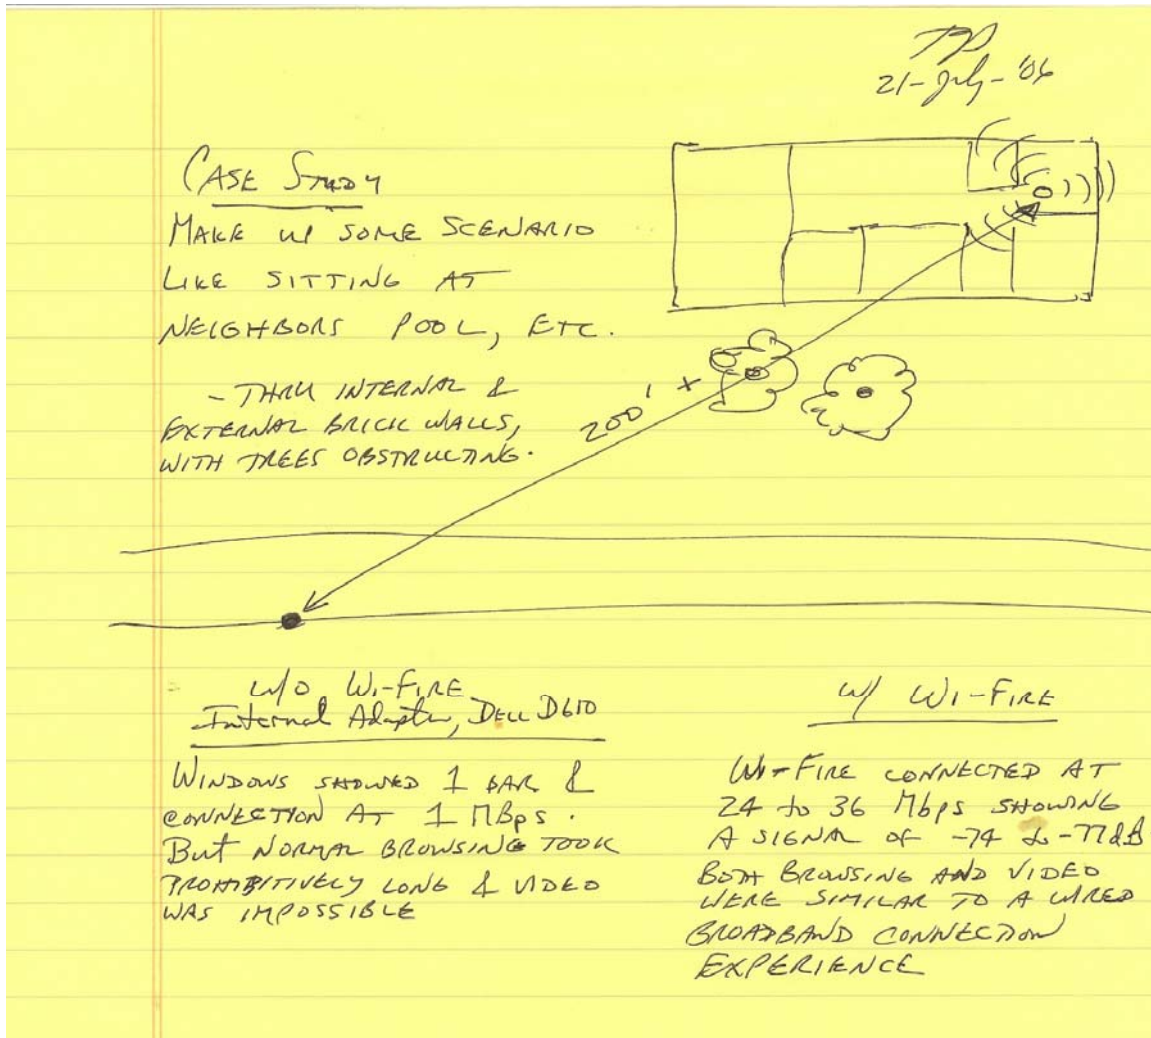 21-July-'06
CASE STUDY
MAKE UP SOME SCENARIO
LIKE SITTING AT
NEIGHBORS POOL, ETC.
- THRU INTERNAL &
EXTERNAL BRICK WALLS,
WITH TREES OBSTRUCTING.
200' +
W/O WI-FIRE
Internal Adapter, DELL D610
WINDOWS SHOWED 1 BAR &
CONNECTION AT 1 MBps.
But NORMAL BROWSING TOOK
PROHIBITIVELY LONG & VIDEO
WAS IMPOSSIBLE
W/ WI-FIRE
WI-FIRE CONNECTED AT
24 to 36 Mbps SHOWING
A SIGNAL OF -74 to -77dB
BOTH BROWSING AND VIDEO
WERE SIMILAR TO A WIRED
BROADBAND CONNECTION
EXPERIENCE